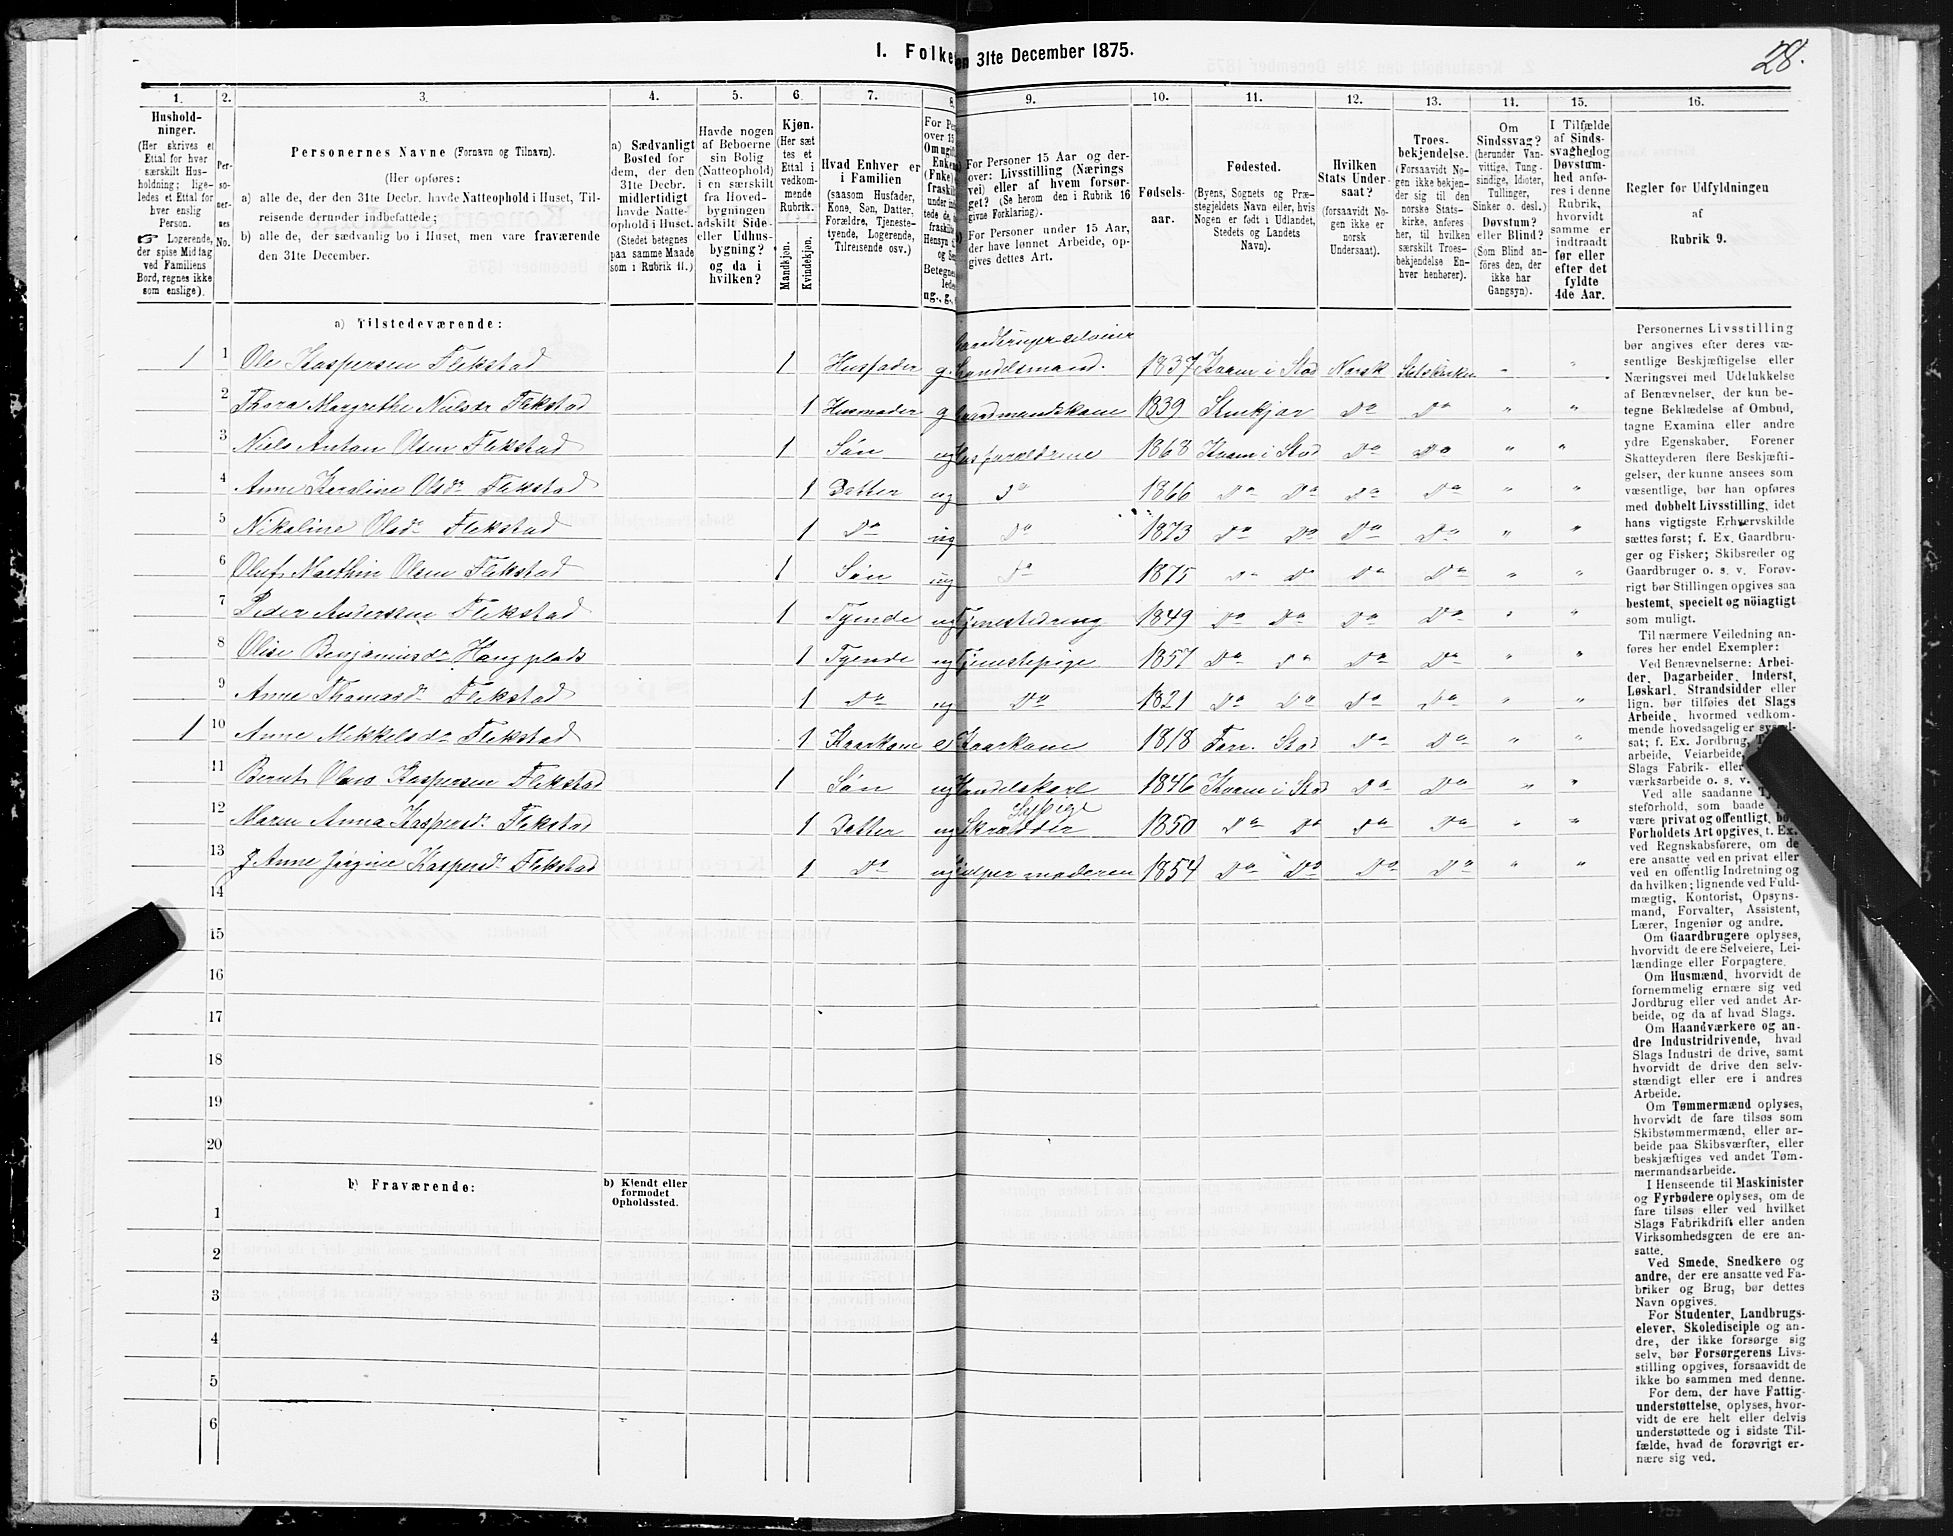 28.
1. Folke en 31te December 1875.
1. 2. 3. 4. 5. 6. 7. 8. 9. 10. 11. 12. 13. 14. 15. 16.
Hushold-
ninger.
(Her skrives et
Ettal for hver
særskilt Hus-
holdning; lige-
ledes et Ettal for
hver enslig
Person.
☞ Logerende,
der spise Middag
ved Familiens
Bord, regnes ikke
som enslige).
Per-
so-
ner-
nes
No.
Personernes Navne (Fornavn og Tilnavn).
(Her opføres:
a) alle de, der den 31te Decbr. havde Natteophold i Huset, Til-
reisende derunder indbefattede;
b) alle de, der sædvanlig bo i Huset, men vare fraværende
den 31te December.
a) Sædvanligt
Bosted for
dem, der den
31te Decbr.
midlertidigt
havde Natte-
ophold i Huset.
(Stedet betegnes
paa samme Maade
som i Rubrik 11.)
Havde nogen
af Beboerne
sin Bolig
(Natteophold)
i en særskilt
fra Hoved-
bygningen
adskilt Side-
eller Udhus-
bygning?
og da i
hvilken?
Kjøn.
(Her sæt-
tes et
Ettal i
vedkom-
mende
Rubrik.
Mandkjøn.
Kvindekjøn.
Hvad Enhver er
i Familien
(saasom Husfader,
Kone, Søn, Datter,
Forældre, Tjeneste-
tyende, Logerende,
Tilreisende osv.)
For Pe
over 15
Om ugift
Enke
(Fnke)
fraskil
under in
tede de,
fraskil
Hensyn
og Se
Betegne
lede
ug., g.,
For Personer 15 Aar og der-
over: Livsstilling (Nærings
vei) eller af hvem forsør-
get? (Se herom den i Rubrik 16
givne Forklaring).
For Personer under 15 Aar,
der have lønnet Arbeide, op-
gives dettes Art.
Fødsels-
aar.
Fødested.
(Byens, Sognets og Præ-
stegjeldets Navn eller, hvis
Nogen er født i Udlandet,
Stedets og Landets
Navn).
Hvilken
Stats Under-
saat?
(forsaavidt No-
gen ikke er
norsk
Undersaat).
Troes-
bekjendelse.
(Forsaavidt No-
gen ikke bekjen-
der sig til den
norske Stats-
kirke, anføres
her, til hvilken
særskilt Troes-
bekjendelse En-
hver henhører).
Om
Sindssvag?
(herunder Van-
vittige, Tung-
sindige, Idioter,
Tullinger,
Sinker o. desl.)
Døvstum?
eller Blind?
(Som Blind an-
føres den, der
ikke har
Gangsyn).
I Tilfælde
af Sinds-
svaghed og
Døvstum-
hed anfø-
res i denne
Rubrik,
hvorvidt
samme er
indtraadt
før eller
efter det
fyldte
4de Aar.
Regler før Udfyldningen
af
Rubrik 9.
a) Tilstedeværende:
Gaardbruger selveier
1 1 Ole Kaspersen Flekstad 1 Husfader g. Handelsmand. 1837 Kvam i Stod Norsk Statskirken " "
2 Thora Margrethe Nielsdr Flekstad 1 Husmoder g Gaardmandskone 1839 Stenkjær Do Do " "
3 Niels Anton Olsen Flekstad 1 Søn ug hos forældrene 1868 Kvam i Stod Do Do " "
4 Anne Karoline Olsdr Flekstad 1 Datter ug Do 1866 Do Do Do Do " "
5 Nikoline Olsdr Flekstad 1 Do ug Do 1873 Do Do Do Do " "
6 Oluf Marthin Olsen Flekstad 1 Søn ug Do 1875 Do Do Do Do " "
7 Peder Anderssen Flekstad 1 Tyende ug Tjenestedreng 1849 Do Do Do Do " "
8 Olise Benjaminsdr Haugplads 1 Tyende ug Tjenestepige 1857 Do Do Do Do " "
9 Anne Thomasdr Flekstad 1 Do ug Do 1821 Do Do Do Do " "
1 10 Anne Mikkelsdr Flekstad 1 Kaarkone e Kaarkone 1818 Stod Do Do " "
11 Bernt Olaus Kaspersen Flekstad 1 Søn ug Handelskarl 1846 Kvam i Stod Do Do " "
Sypige
12 Maren Anna Kaspersdr Flekstad 1 Datter ug Skrædder 1850 Do Do Do Do " "
13 Anne Jørgine Kaspersdr Flekstad 1 Do ug hjælper moderen 1854 Do Do Do Do " "
14
15
16
17
18
19
20
b) Fraværende: b) Kjendt eller
formodet
Opholdssted.
1
2
3
4
5
6
Personernes Livsstilling
bør angives efter deres væ-
sentlige Beskjæftigelse eller
Næringsvei med Udelukkelse
af Benævnelser, der kun be-
tegne Beklædelse af Ombud,
tagne Examina eller andre
ydre Egenskaber. Forener
Skatteyderen flere Beskjæfti-
gelser, der kunne ansees som
væsentlige, bør han opføres
med dobbelt Livsstilling, idet
hans vigtigste Erhvervskilde
sættes først; f. Ex. Gaardbru-
ger og Fisker; Skibsreder og
Gaardbruger o. s. v. Forøv-
rigt bør Stillingen opgives saa
bestemt, specielt og nöiagtigt
som muligt.
Til nærmere Veiledning an-
føres her endel Exempler:
Ved Benævnelserne: Arbei-
der, Dagarbeider, Inderst,
Løskarl, Strandsidder eller
lign. bør tilføies det Slags
Arbeide, hvormed vedkom-
mende hovedsagelig er syssel-
sat; f. Ex. Jordbrug, T
arbeide, Veiarbeide,
Slags Fabrik- eller
værksarbeide o. s. v.
Ved alle saadanne Tj
steforhold, som baade
være privat og offentlig, bø
Forholdets Art opgives, t. Ex.
ved Regnskabsførere, om de
ere ansatte ved en privat eller
ved en offentlig Indretning og
da hvilken; lignende ved Fuld-
mægtig, Kontorist, Opsyns-
mand, Forvalter, Assistent,
Lærer, Ingeniør og andre.
Om Gaardbrugere oplyses,
hvorvidt de ere Selveiere, Lei-
lændinge eller Forpagtere.
Om Husmænd, hvorvidt de
fornemmelig ernære sig ved
Jordbrug eller ved andet Ar-
beide, og da af hvad Slags.
Om Haandværkere og an-
dre Industridrivende, hvad
Slags Industri de drive, samt
hvorvidt de drive den selv-
stændigt eller ere i andres
Arbeide.
Om Tømmermænd oplyses,
hvorvidt de fare tilsøs som
Skibstømmermænd, eller ar-
beide paa Skibsværfter, eller
beskjæftiges ved andet Tøm-
mermandsarbeide.
I Henseende til Maskinister
og Fyrbødere oplyses, om de
fare tilsøs eller ved hvilket
Slags Fabrikdrift eller anden
Virksomhedsgren de ere an-
satte.
Ved Smede, Snedkere og
andre, der ere ansatte ved Fa-
briker og Brug, bør dettes
Navn opgives.
For Studenter, Landbrugs-
elever, Skoledisciple og an-
dre, der ikke forsørge sig
selv, bør Forsørgerens Livs-
stilling opgives, forsaavidt de
ikke bo sammen med denne.
For dem, der have Fattig-
understøttelse, oplyses, hvor-
vidt de ere helt eller delvis
understøttede og i sidste Til-
fælde, hvad de forøvrigt er-
nære sig ved.